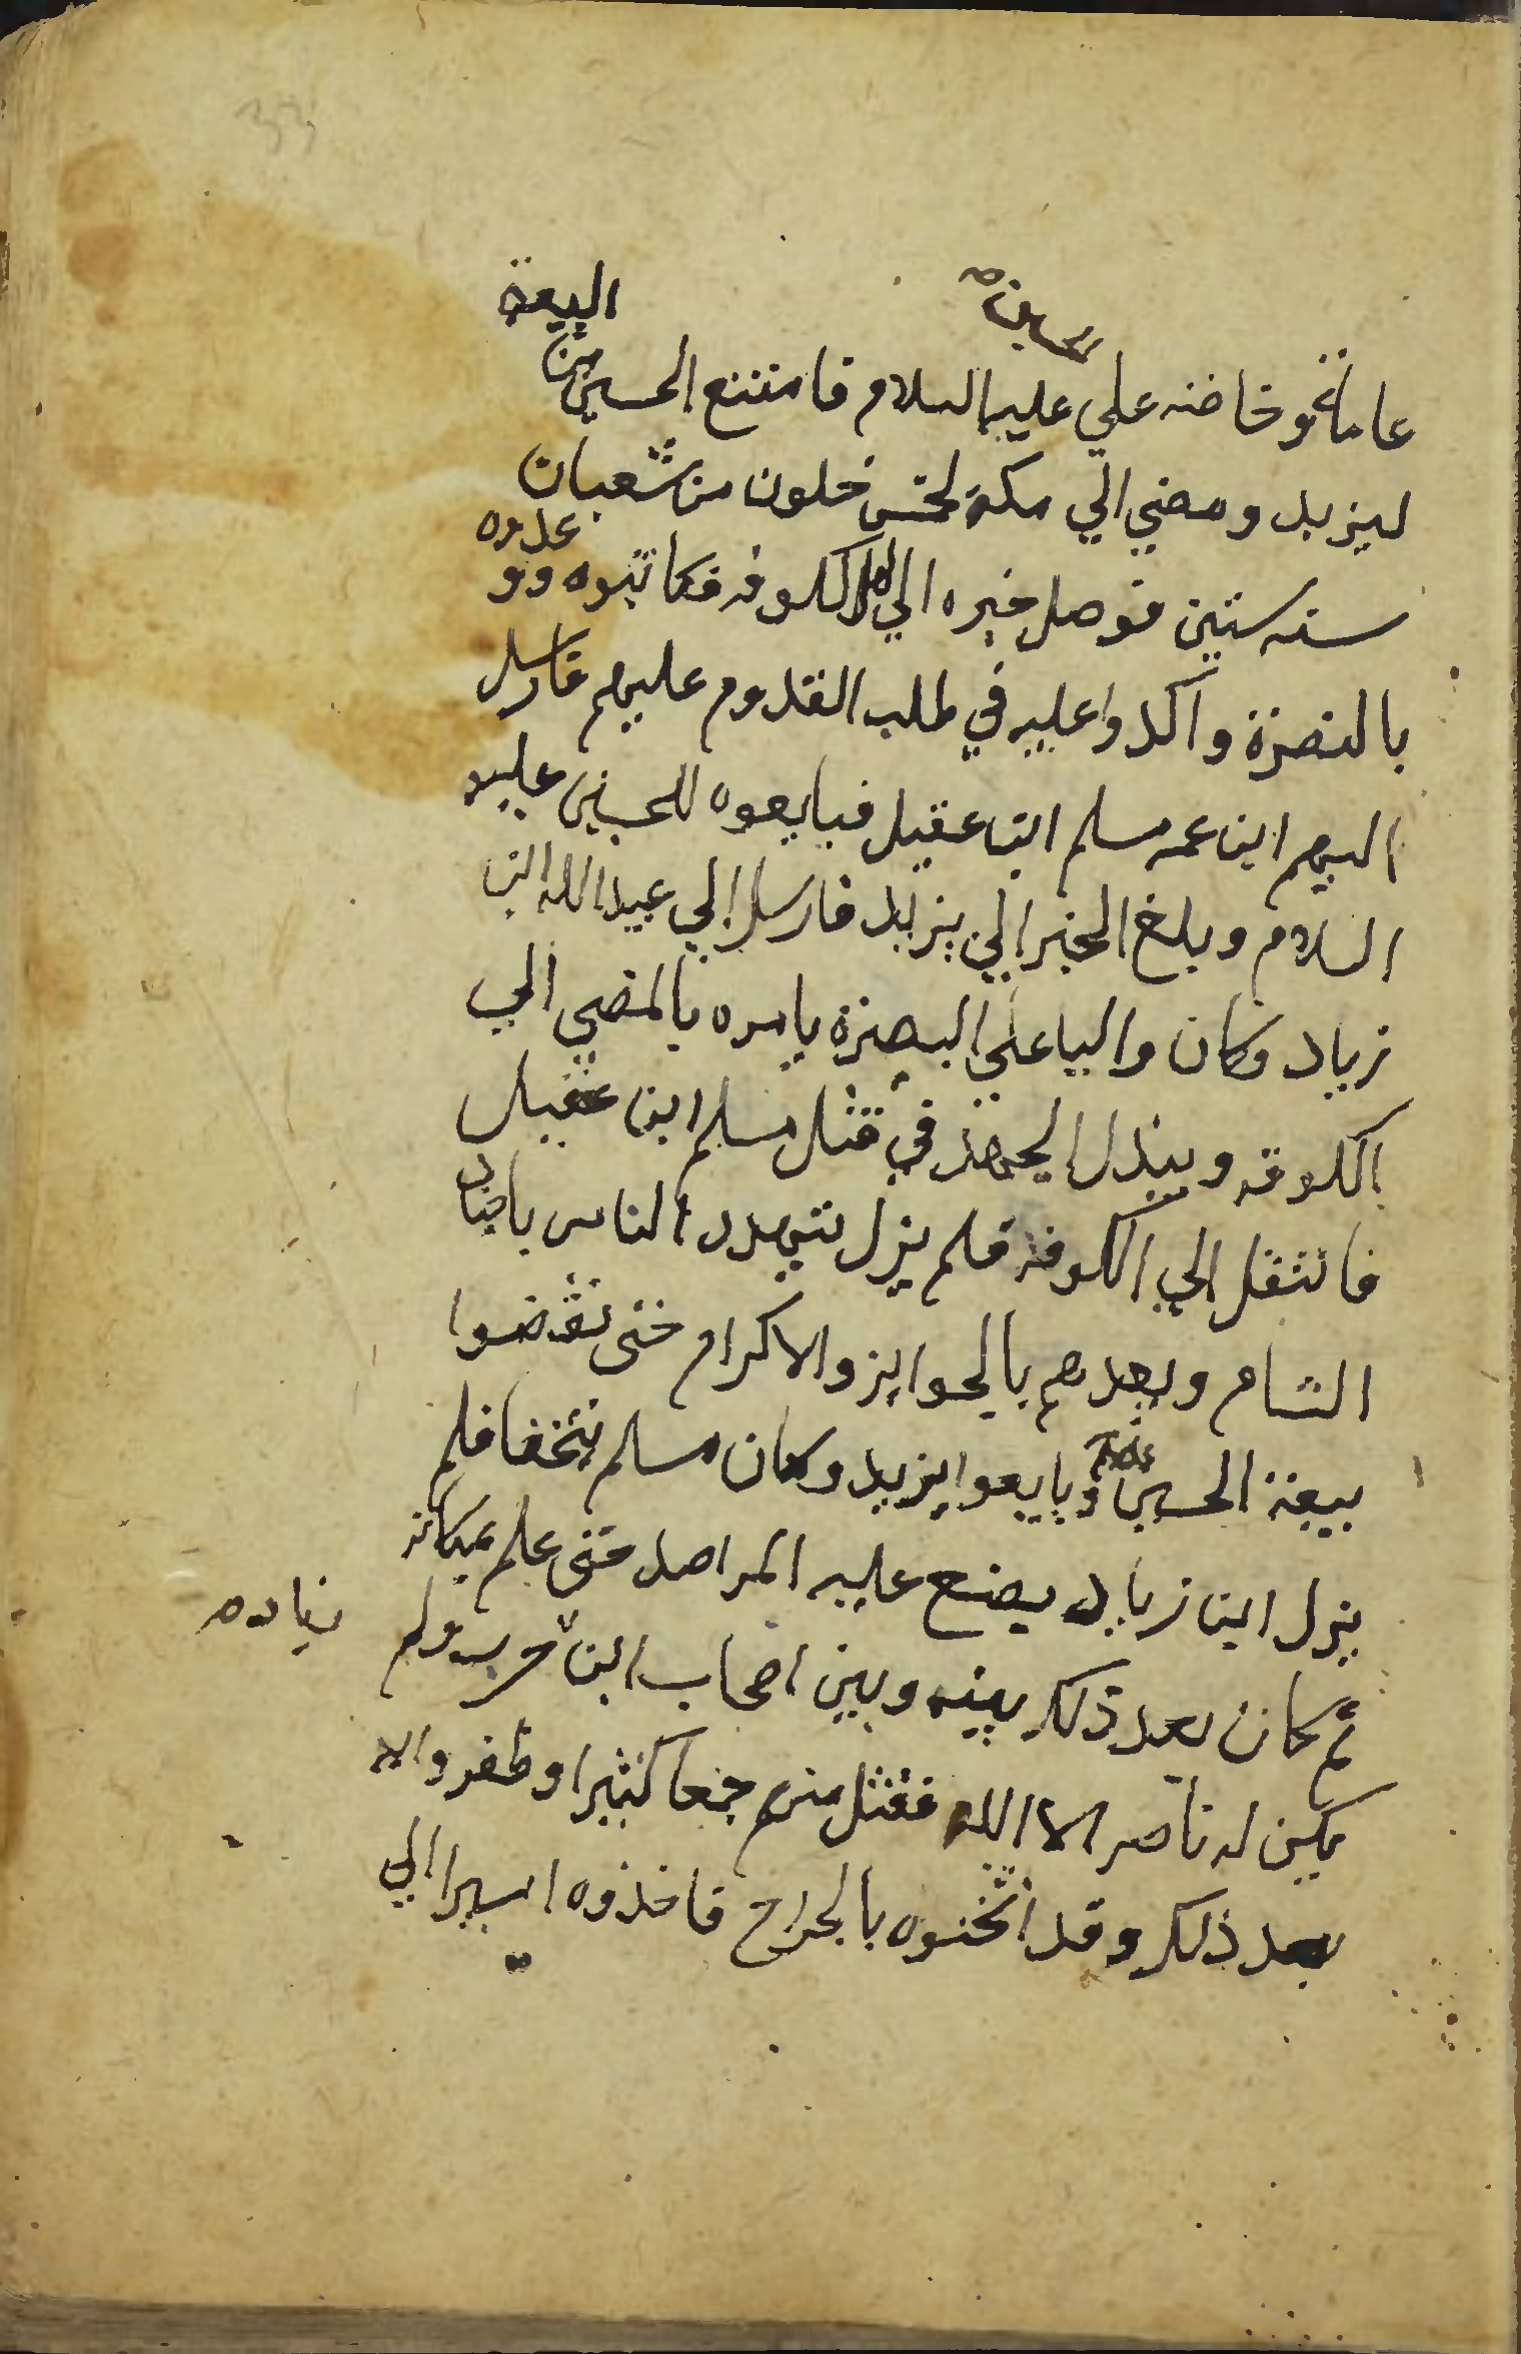 الحسين صح
البيعة
عاما نحو خاضنه علي عليه السلام فامتنع الحسين من
ليزيد ومضي الي مكة لخمس خلون من شعبان
سنه ستين فوصل خبره الي اهل الكوفه فكاتبوه وو
عدوه
بالنصرة واكدوا عليه في طلب القدوم عليهم فارسل
اليهم ابن عمه مسلم ابن عقيل فبايعوه للحسين عليه
السلام وبلغ الخبر الي يزيد فارسل الي عبيد الله ابن
زياد وكان واليا علي البصرة يامره بالمضي الي
الكوفه ويبذل الجهد في قتل مسلم ابن عقيل
فانتقل الي الكوفه فلم يزل يتهدد الناس باجناد
الشام ويعدهم بالجوايز والاكرام حتى نقضوا
بيعة الحسين وبايعوا يزيد وكان مسلم متخفا فلم
يزل ابن زياد يضع عليه المراصد حتى علم بمكانه
ثم كان بعد ذلك بينه وبين اصحاب ابن حرب ولم
زياد صح
يكن له ناصر الا الله فقتل منهم جمعا كثيرا وظفروا به
بعد ذلك وقد اثخنوه بالجراح فاخذوه اسيرا الي